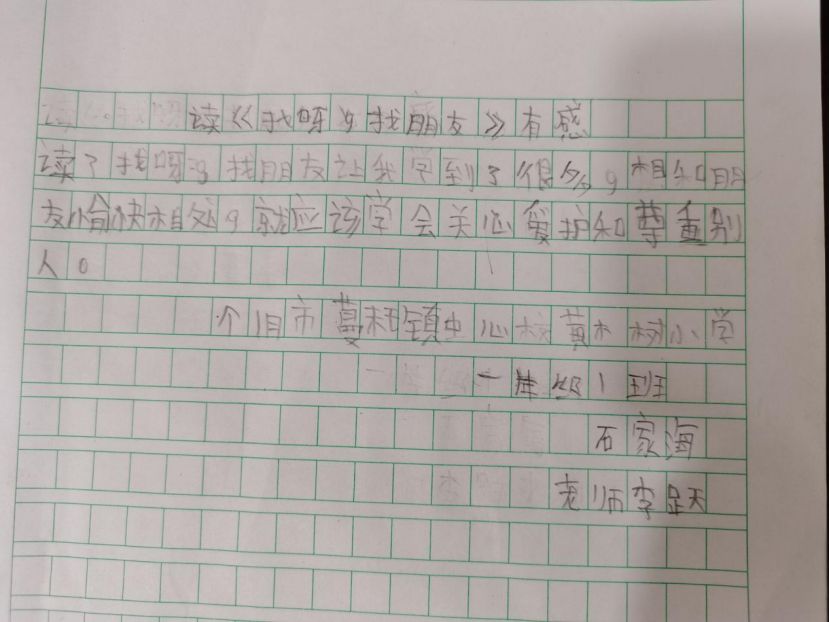 读《找呀,找朋友》有感
读了找呀,找朋友让我学到了很多,相和朋
友愉快相处,就应该学会关心爱护和尊重别
人。
个旧市蔓耗镇中心校黄木树小学
一年级1班
石家海
老师李跃